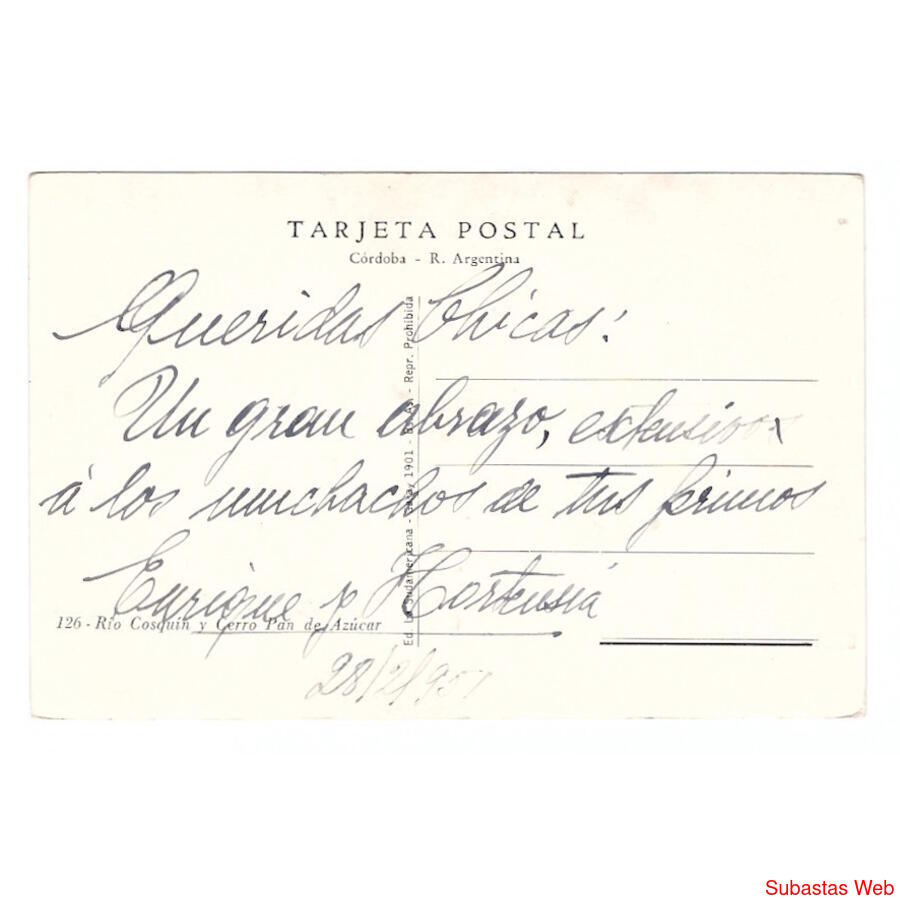 TARJETA POSTAL
Córdoba - R. Argentina
Queridas Chicas:
Un gran abrazo, extensivo
á los muchachos de tus primos
Enrique y Hortensia
126 - Río Cosquín y Cerro Pan de Azúcar
28/2/951
Ed. La Sudamericana - 1901 - - Repr. Prohibida
Subastas Web